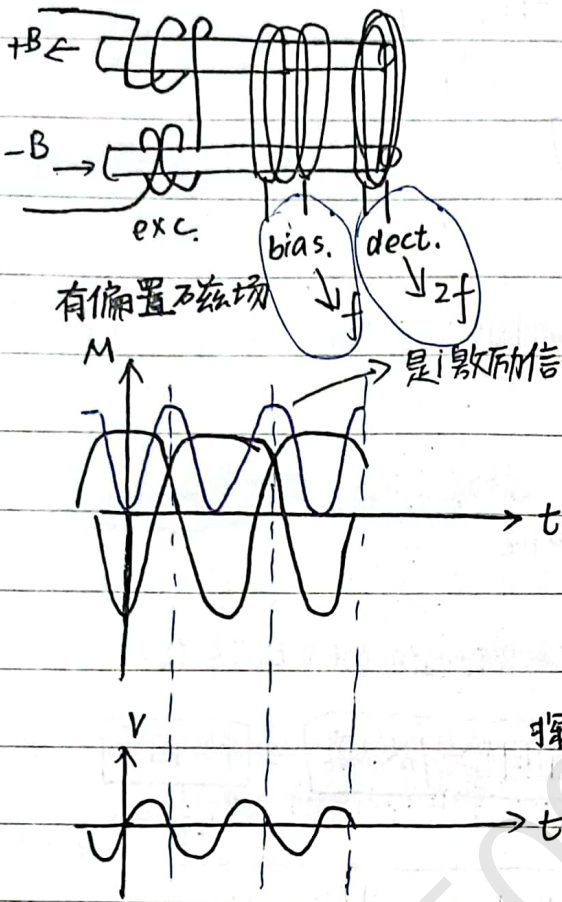 +B
-B
exc.
bias.
dect.
f
2f
有偏置磁场
M
是激励信
t
V
t